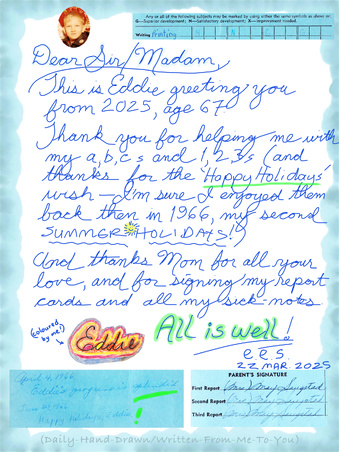 Any or all of the following subjects may be marked by using either the same symbols as above or
G—Superior development; N—Satisfactory development; X—Improvement needed.
Writing Printing
Dear Sir/Madam,
This is Eddie greeting you
from 2025, age 67.
Thank you for helping me with
my a, b, c s and 1, 2, 3s (and
thanks for the 'Happy Holidays'
wish—I'm sure I enjoyed them
back then in 1966, my second
SUMMER HOLIDAYS!)
And thanks Mom for all your
love, and for signing my report
cards and all my sick-notes
(coloured by me?)
Eddie
All is well!
e.e.s.
22 MAR. 2025
April 4, 1966
Eddie's
June 29, 1966
Happy holidays Eddie!
PARENT'S SIGNATURE
First Report (Mrs.) May
Second Report (Mrs.) May
Third Report (Mrs.) May
(Daily-Hand-Drawn/Written-From-Me-To-You)